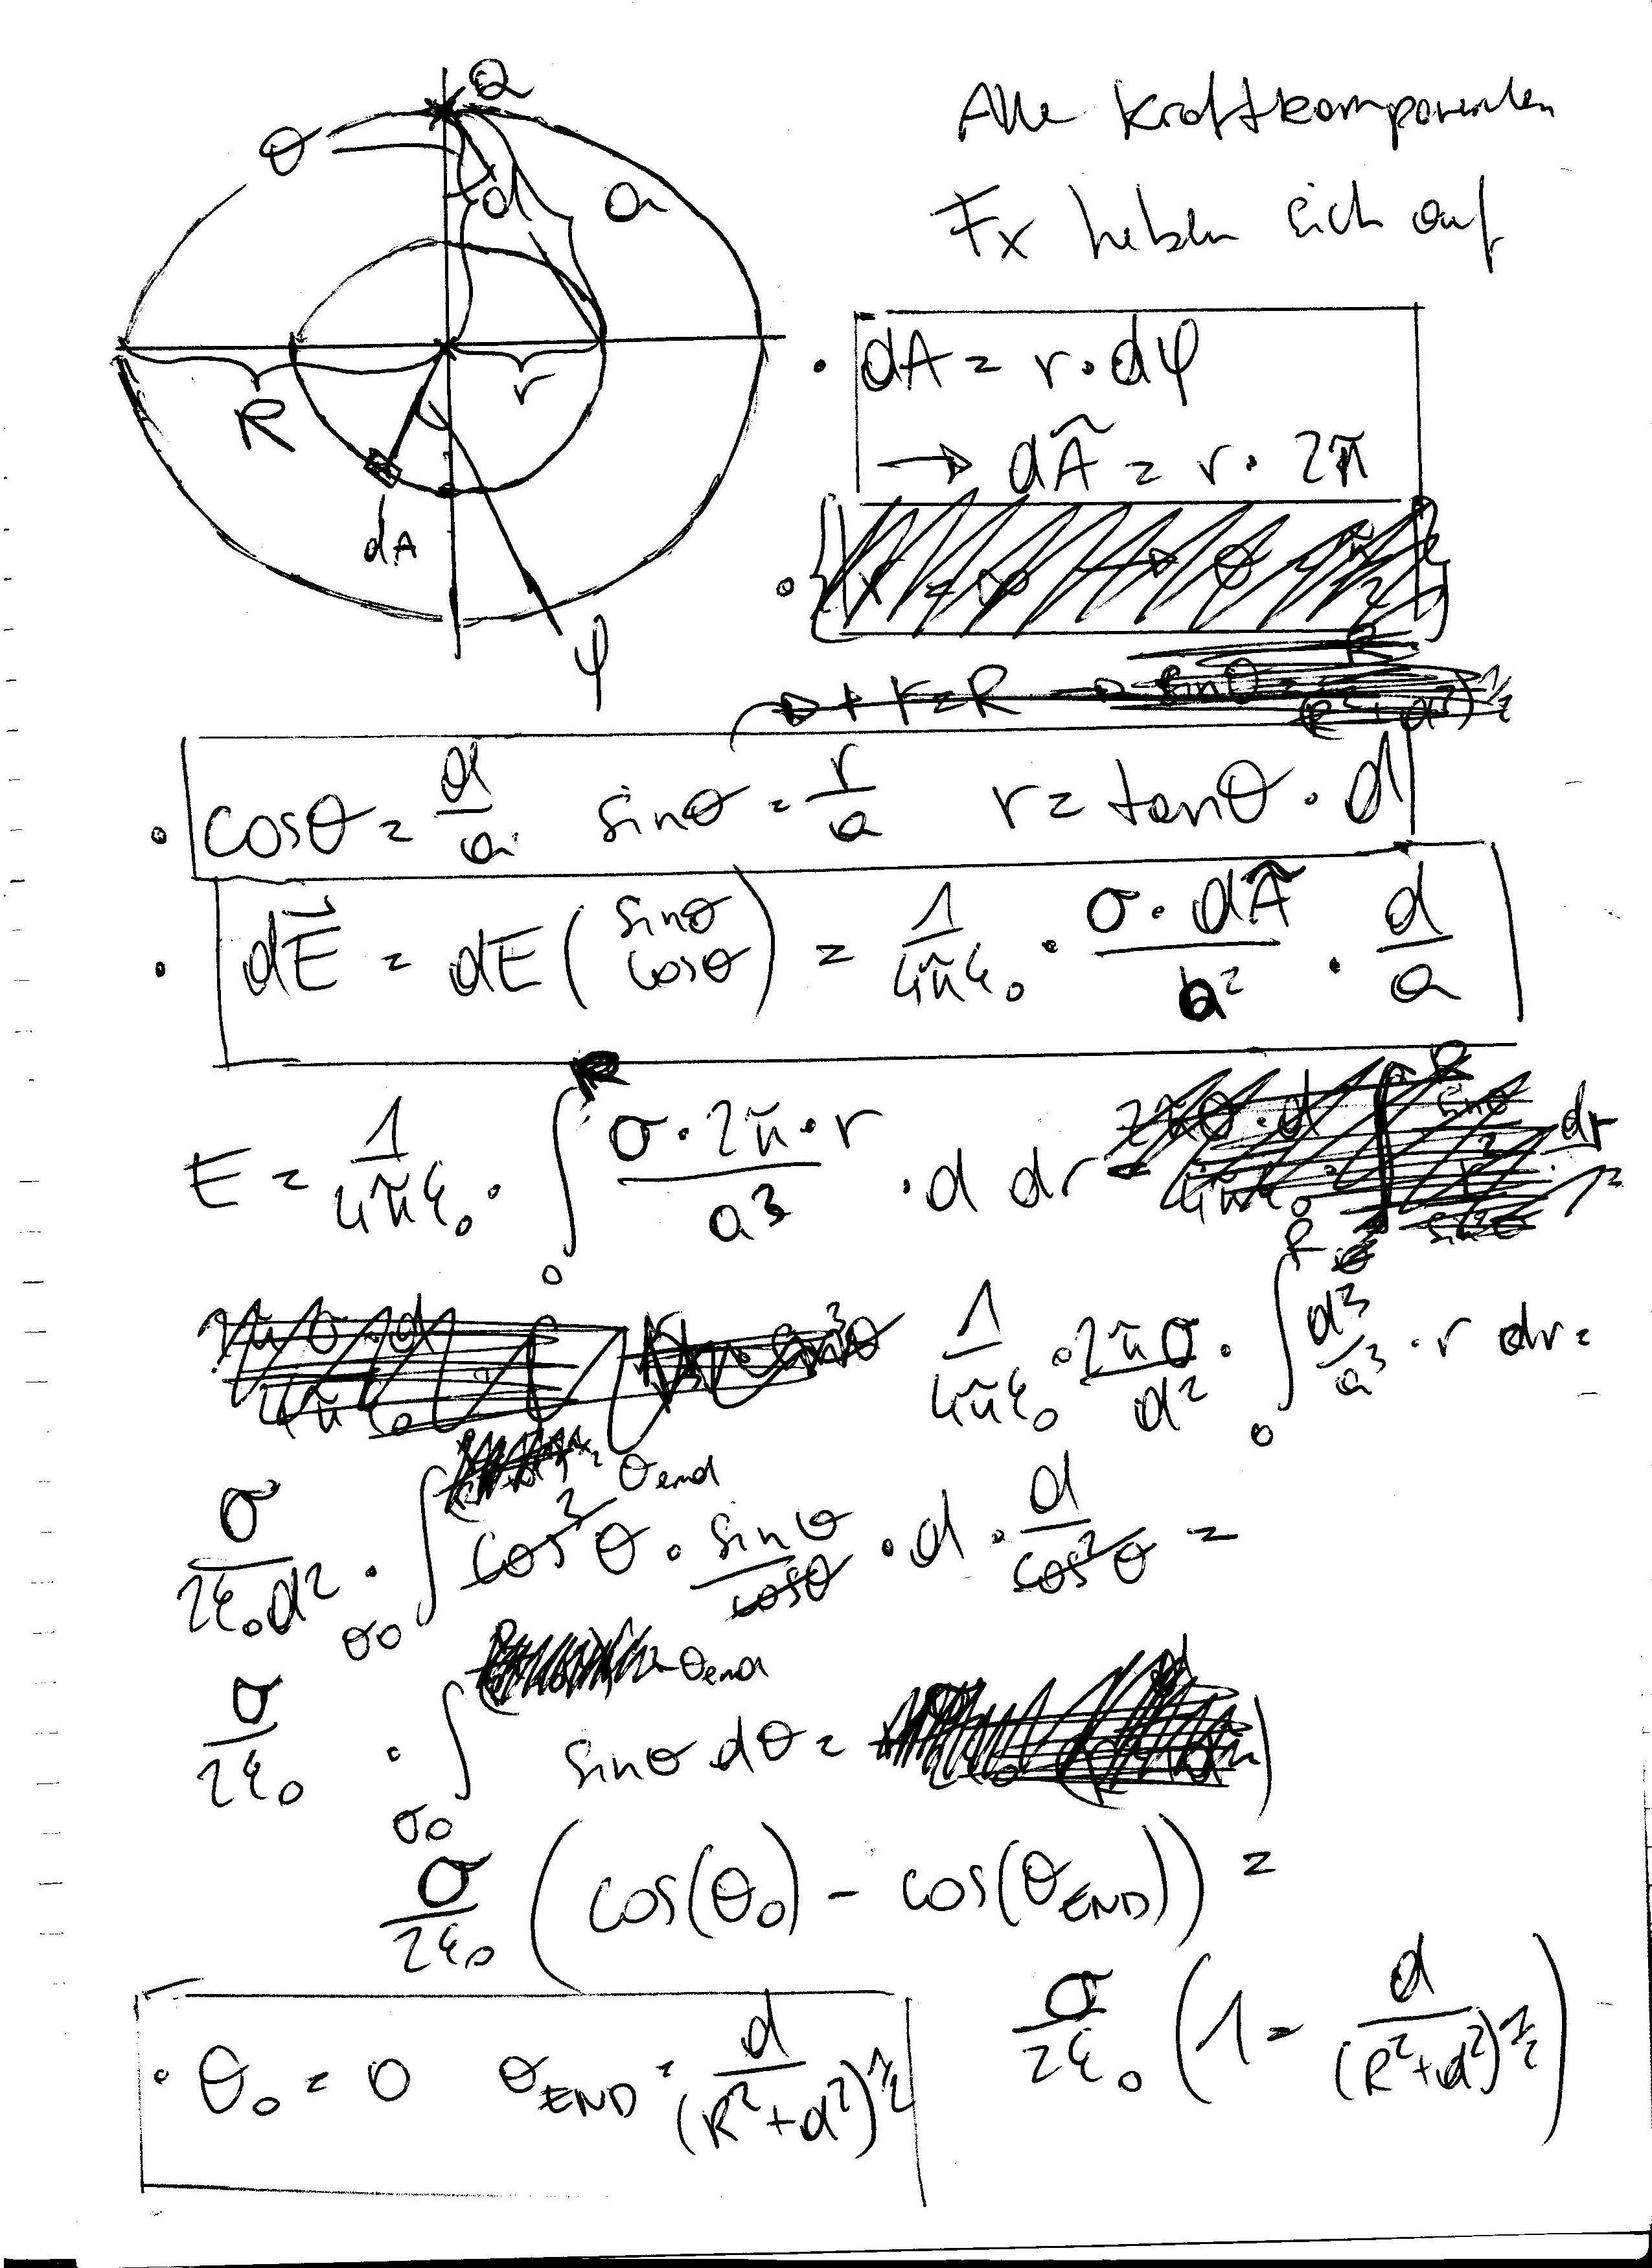 Q
θ
d
a
R
r
dA
φ
Alle Kraftkomponenten
Fx heben sich auf
• dA = r·dφ
→ dÃ = r·2π
→ + r=R → sinθ = R/(R²+d²)^½
• cosθ = d/a sinθ = r/a r = tanθ · d
• dE⃗ = dE (sinθ cosθ) = 1/4πε₀ · σ·dÃ/a² · d/a
E = 1/4πε₀ · ∫₀ᴿ σ·2π·r/a³ · d dr =
1/4πε₀ · 2πσ/d² · ∫₀ᴿ d³/a³ · r dr =
σ/2ε₀d² · ∫_θ₀^θend cos³θ · sinθ/cosθ · d · d/cos²θ =
σ/2ε₀ · ∫_θ₀^θend sinθ dθ =
σ/2ε₀ (cos(θ₀) - cos(θEND)) =
• θ₀ = 0 θEND = d/(R²+d²)^½
σ/2ε₀ (1 - d/(R²+d²)^½)